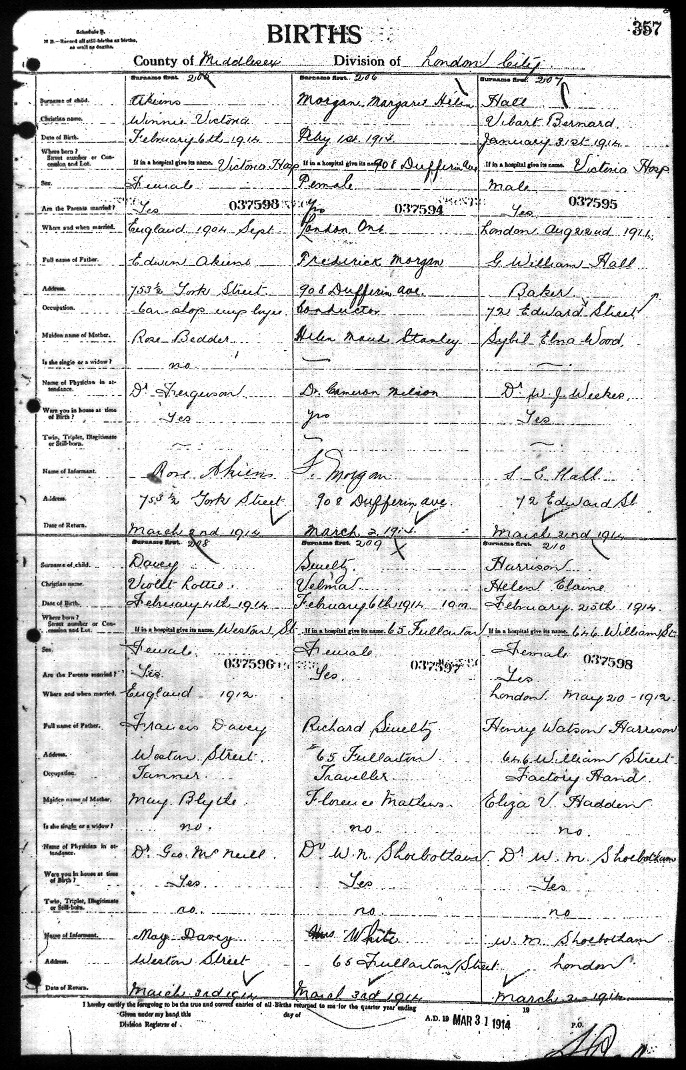 Schedule B.
N B.—Record all still births as births, as well as deaths.
BIRTHS
357
County of Middlesex Division of London City
Surname first. 205 Surname first. 206 Surname first. 207
Surname of child. Akins Morgan, Margaret Helen Hall
Christian name. Winnie Victoria Vibart Bernard
Date of Birth. February 6th 1914 Feby 1st 1914 January 31st 1914
Where born? Street number or Concession and Lot. If in a hospital give its name. Victoria Hosp If in a hospital give its name. 908 Dufferin Ave If in a hospital give its name. Victoria Hosp
Sex. Female Female Male
Are the Parents married? Yes 037593 Yes 037594 Yes 037595
Where and when married. England 1904 Sept. London Ont London Aug 22nd
Full name of Father. Edwin Akins Frederick Morgan G. William Hall
Address. 753½ York Street 908 Dufferin Ave. Baker
Occupation. Car shop employee Conductor 72 Edward Street
Maiden name of Mother. Rose Bedder Helen Maud Stanley Sybil Edna Wood
Is she single or a widow? no — —
Name of Physician in attendance. Dr Ferguson Dr. Cameron Wilson Dr W. J. Weekes
Were you in house at time of Birth? Yes yes Yes
Twin, Triplet, Illegitimate or Still-born. — — —
Name of Informant. Rose Akins F. Morgan S. E. Hall
Address. 753½ York Street 908 Dufferin Ave. 72 Edward St
Date of Return. March 2nd 1914 March 2 1914 March 2nd 1914
Surname first. 208 Surname first. 209 Surname first. 210
Surname of child. Davey Smeltz Harrison
Christian name Violet Lottie Velma Helen Elaine
Date of Birth. February 4th 1914 February 6th 1914 February 25th 1914
Where born? Street number or Concession and Lot. If in a hospital give its name. Weston St If in a hospital give its name. 65 Fullarton If in a hospital give its name. 646 William St.
Sex. Female Female Female
Are the Parents married? Yes. 037596 Yes. 037597 Yes 037598
Where and when married. England 1912. London. May 20-1912.
Full name of Father. Francis Davey Richard Smeltz Henry Watson Harrison
Address. Weston Street 65 Fullarton 646 William Street
Occupation. Tanner Traveller Factory Hand
Maiden name of Mother. May Blythe Florence Mathews. Eliza V. Hadden
Is she single or a widow? no. no. no.
Name of Physician in attendance. Dr Geo. McNeill Dr W. N. Shoebotham Dr W. M. Shoebotham
Were you in house at time of Birth? Yes Yes Yes
Twin, Triplet, Illegitimate or Still-born. no. no. no
Name of Informant. May Davey Mrs White W. M. Shoebotham
Address Weston Street 65 Fullarton Street London
Date of Return. March 3rd 1914 March 3rd 1914 March 2-1914
I hereby certify the foregoing to be the true and correct entries of all Births returned to me for the quarter year ending 19
Given under my hand this day of A.D. 19 MAR 31 1914
Division Registrar of P.O.